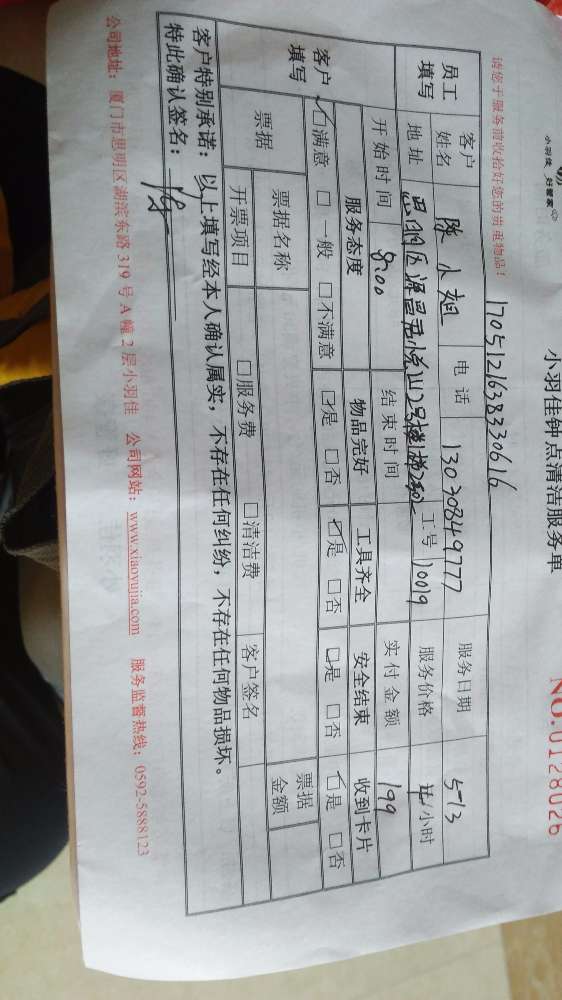 小羽佳 好管家
小羽佳钟点清洁服务单
NO.0128026
请您于服务前收拾好您的贵重物品!
1705121638330616
员工填写 客户姓名 陈小姐 电话 13030849777 服务日期 5-13
地址 思明区源昌君悦山2号楼梯 工号 10019 服务价格 /小时
开始时间 8:00 结束时间 实付金额 199
客户填写 服务态度 物品完好 工具齐全 安全结束 收到卡片
☑满意 □一般 □不满意 ☑是 □否 ☑是 □否 ☑是 □否 ☑是 □否
票据 票据名称 票据金额
开票项目 □服务费 □清洁费 客户签名
客户特别承诺:以上填写经本人确认属实,不存在任何纠纷,不存在任何物品损坏。
特此确认签名:
公司地址:厦门市思明区湖滨东路319号A幢2层小羽佳 公司网站:www.xiaoyujia.com 服务监督热线:0592-5888123